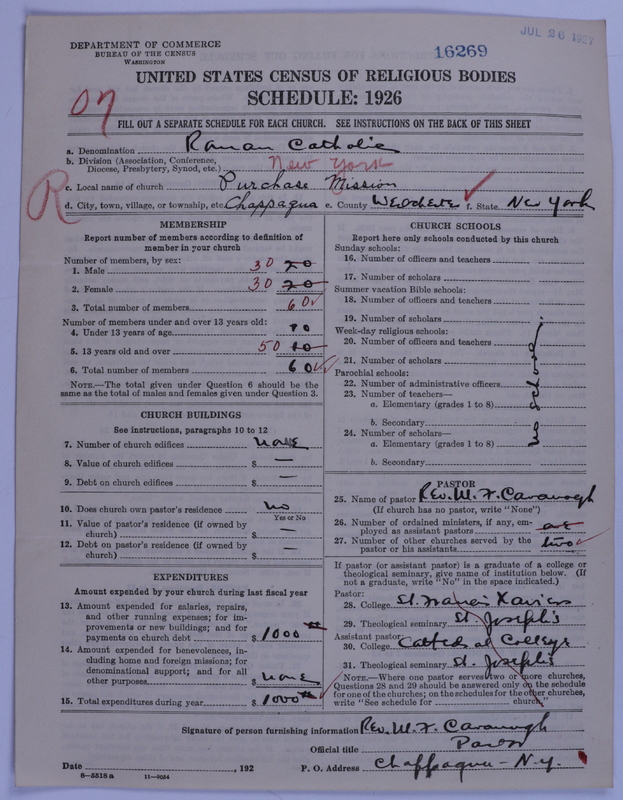 JUL 26 1927
16269
DEPARTMENT OF COMMERCE
BUREAU OF THE CENSUS
WASHINGTON
UNITED STATES CENSUS OF RELIGIOUS BODIES
SCHEDULE: 1926
07
FILL OUT A SEPARATE SCHEDULE FOR EACH CHURCH. SEE INSTRUCTIONS ON THE BACK OF THIS SHEET
a. Denomination Roman Catholic
b. Division (Association, Conference, Diocese, Presbytery, Synod, etc.) New York
R
c. Local name of church Purchase Mission
d. City, town, village, or township, etc. Chappaqua e. County Westchester f. State New York
MEMBERSHIP
Report number of members according to definition of
member in your church
Number of members, by sex:
1. Male 30 20
2. Female 30 20
3. Total number of members 60
Number of members under and over 13 years old:
4. Under 13 years of age 10
5. 13 years old and over 50 10
6. Total number of members 60
NOTE.—The total given under Question 6 should be the
same as the total of males and females given under Question 3.
CHURCH BUILDINGS
See instructions, paragraphs 10 to 12
7. Number of church edifices none
8. Value of church edifices $ —
9. Debt on church edifices $ —
10. Does church own pastor's residence no
Yes or No
11. Value of pastor's residence (if owned by
church) $ —
12. Debt on pastor's residence (if owned by
church) $ —
EXPENDITURES
Amount expended by your church during last fiscal year
13. Amount expended for salaries, repairs,
and other running expenses; for im-
provements or new buildings; and for
payments on church debt $ 1000
14. Amount expended for benevolences, in-
cluding home and foreign missions; for
denominational support; and for all
other purposes $ none
15. Total expenditures during year $ 1000
CHURCH SCHOOLS
Report here only schools conducted by this church
Sunday schools:
16. Number of officers and teachers
17. Number of scholars
Summer vacation Bible schools:
18. Number of officers and teachers
19. Number of scholars
Week-day religious schools:
20. Number of officers and teachers
21. Number of scholars
Parochial schools:
22. Number of administrative officers
23. Number of teachers—
a. Elementary (grades 1 to 8)
b. Secondary
24. Number of scholars—
a. Elementary (grades 1 to 8)
b. Secondary
no school
PASTOR
25. Name of pastor Rev. W. F. Cavanogh
(If church has no pastor, write "None")
26. Number of ordained ministers, if any, em-
ployed as assistant pastors
27. Number of other churches served by the
pastor or his assistants two
If pastor (or assistant pastor) is a graduate of a college or
theological seminary, give name of institution below. (If
not a graduate, write "No" in the space indicated.)
Pastor:
28. College St. Francis Xaviers
29. Theological seminary St. Joseph's
Assistant pastor:
30. College Cathedral College
31. Theological seminary St. Joseph's
NOTE.—Where one pastor serves two or more churches,
Questions 28 and 29 should be answered only on the schedule
for one of the churches; on the schedules for the other churches,
write "See schedule for church."
Signature of person furnishing information Rev. W. F. Cavanogh
Official title Pastor
Date , 192 P. O. Address Chappaqua - N.Y.
8—5518 a 11—9034